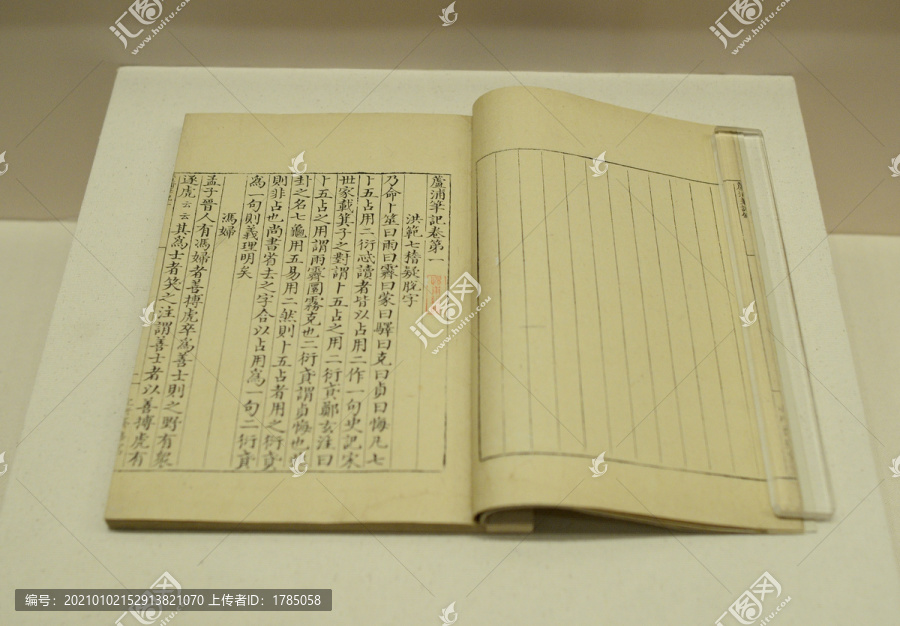 蘆浦筆記卷第一
洪範七稽疑脫字
乃命卜筮曰雨曰霽曰蒙曰驛曰克曰貞曰悔凡七
卜五占用二衍忒讀者皆以占用二作一句史記宋
世家載箕子之對謂卜五占之用二衍貣鄭玄注曰
卜五占之用謂雨霽圛霧克也二衍貣謂貞悔也
卦之名七龜用五易用二然則卜五占者用之衍貣
則非占也尚書省去之字合以占用爲一句二衍貣
爲一句則義理明矣
馮婦
孟子晉人有馮婦者善搏虎卒爲善士則之野有衆
逐虎云云其爲士者笑之注謂善士者以善搏虎有
汇图网
www.huitu.com
编号：20210102152913821070 上传者ID：1785058